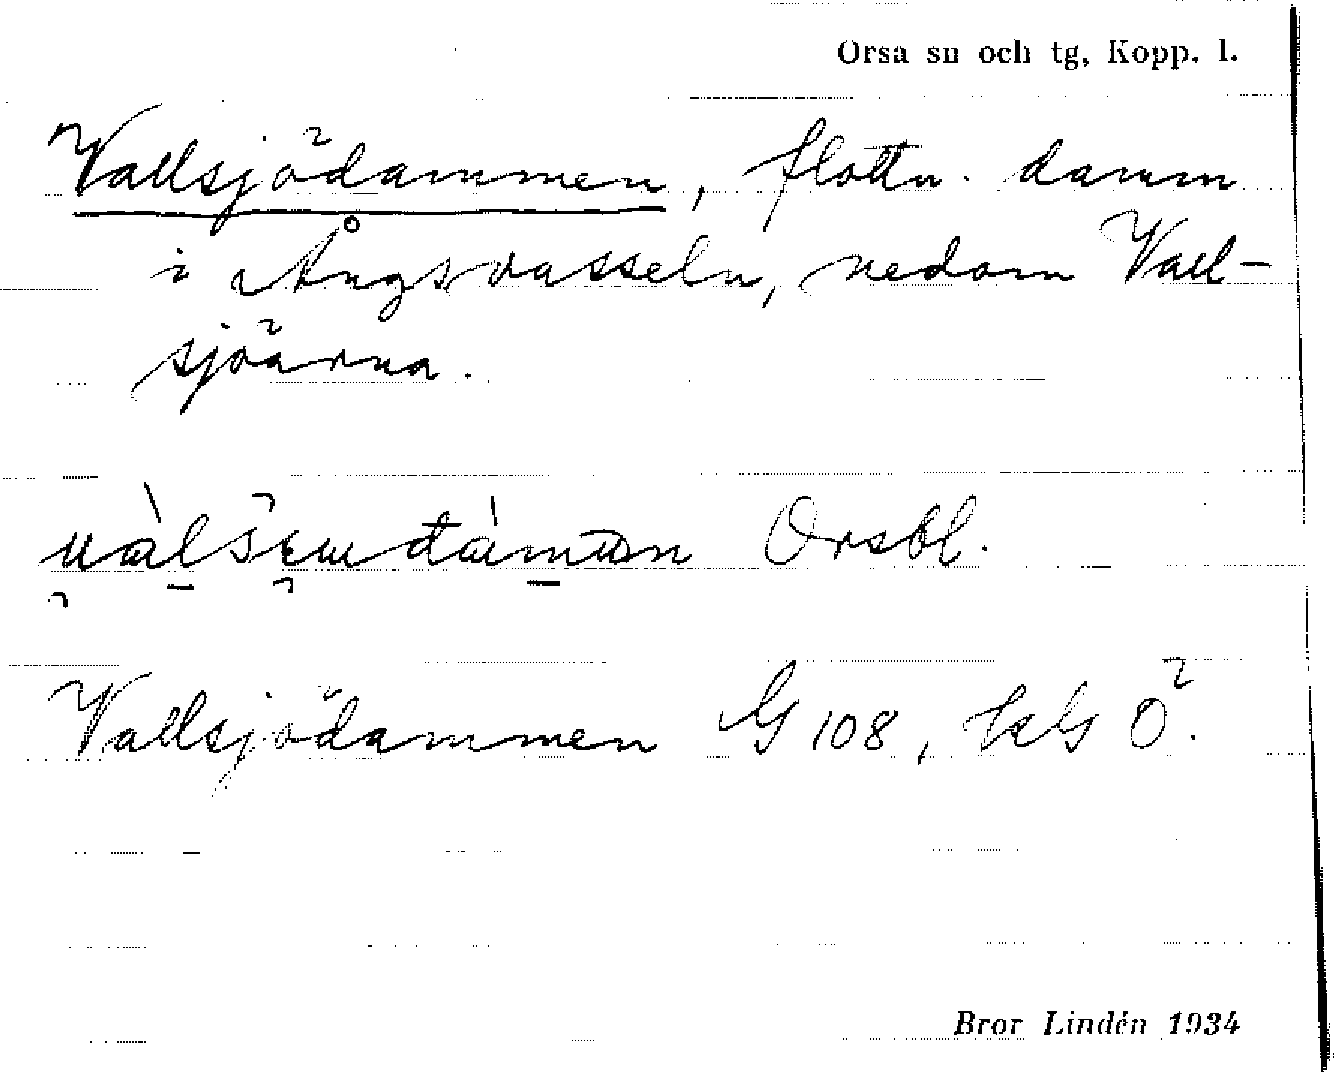 Orsa sn och tg, Kopp. l.
Vallsjödammen, flottn. damm
i Ångsvasseln, nedom Vall-
sjöarna.
Orsbl.
Vallsjödammen G 108, kG Ö.
Bror Lindén 1934